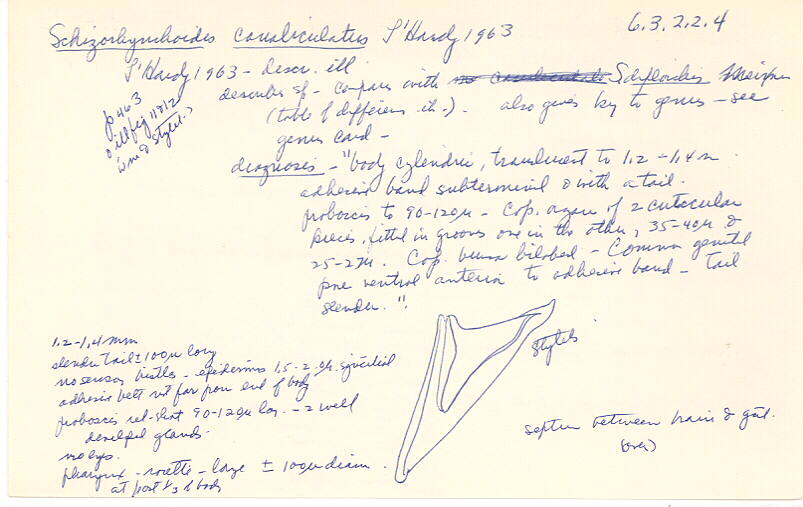 Schizorhynchoides canaliculatus L'Hardy 1963
6.3.2.2.4
L'Hardy 1963 - descr. ill
p 463
ill fig 11 & 12
describes sp - compares with
(table of differences). also gives key to genus - see
genus card -
diagnosis - "body cylindric, translucent to 1.2 - 1.4 m
adhesive band subterminal & with a tail.
proboscis to 90-120µ - Cop. organ of 2 cuticular
pieces, fitted in grooves one in the other, 35-40µ &
25-27µ. Cop. bursa bilobed - Common genital
pore ventral anterior to adhesive band - tail
slender."
1.2-1.4 mm
slender tail ± 100µ long
no sensory bristles - epidermis 1.5-2 µ syncitial
adhesive belt not far from end of body
proboscis rel. short 90-120µ long - 2 well
developed glands.
no eyes.
pharynx - rosette - large ± 100µ diam.
at post 1/3 of body
stylets
septum between brain & gut.
(over)